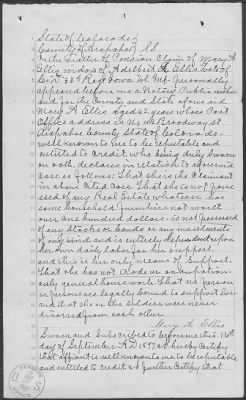 State of Colorado
County of Arapahoe SS
In the matter of Pension Claim of Mary A
Ellis widow of Adelbert A. Ellis late of
Regt Iowa Vol Inf. Personally
appeared before me a Notary Public within
and for the County and State aforesaid
Mary A Ellis aged years whose Post
Office address is Broadway St
Arapahoe County State of Colorado
well known to me to be reputable and
entitled to credit who being duly sworn
on oath, declares in relation to aforesaid
case as follows: That she is the Claimant
in above Cited Case. That she is not posses
sed of any Real Estate whatever has
some household furniture not worth
over one hundred dollars. is not possessed
of any Stocks or bonds or any investments
of any kind and is entirely dependent upon
her own daily labor for her support
and this is her only means of support.
That she has not trade or occupation.
only general housework. That no person
or persons are legally bound to support her
and that she and the Soldier were never
divorced from each other
Mary A. Ellis
Sworn and Subscribed to before me this
day of September A.D. 1897. & I hereby Certify
that affiant is well known to me to be reputable
and entitled to credit & I further Certify that